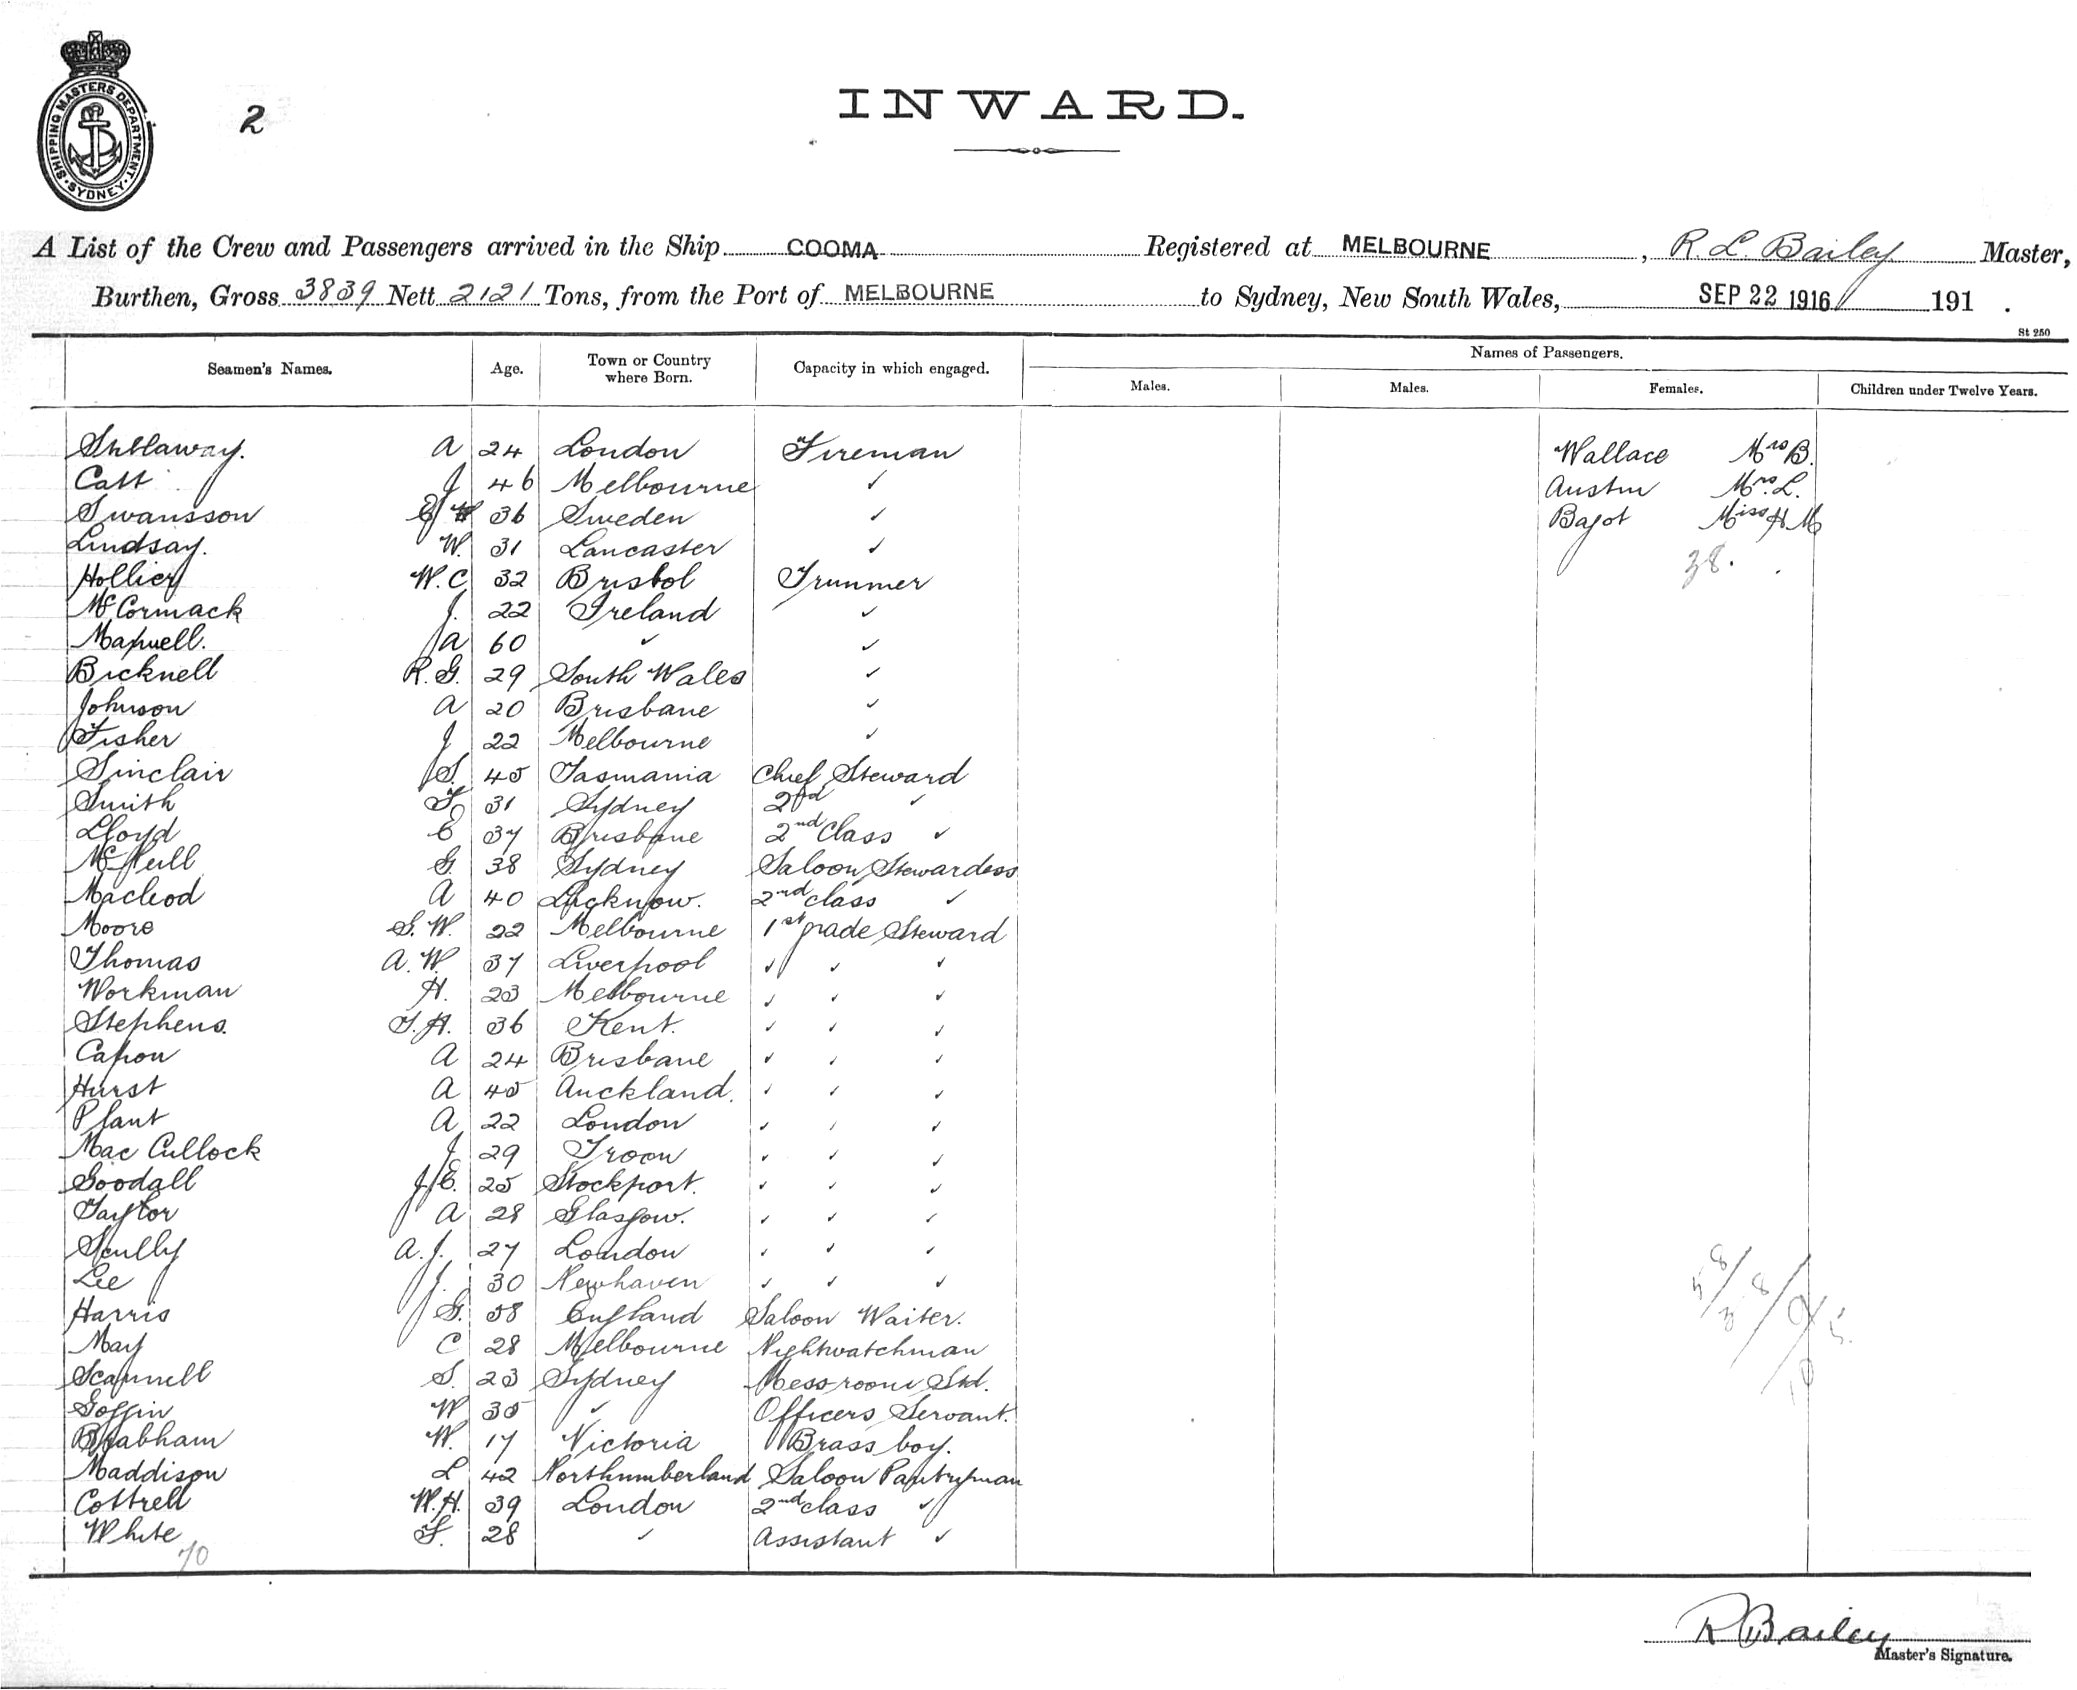 SHIPPING MASTERS DEPARTMENT
SYDNEY
2
INWARD.
A List of the Crew and Passengers arrived in the Ship COOMA Registered at MELBOURNE, R. L. Bailey Master,
Burthen, Gross 3839 Nett 2121 Tons, from the Port of MELBOURNE to Sydney, New South Wales, SEP 22 1916 191 .
St 250
Seamen's Names. Age. Town or Country where Born. Capacity in which engaged. Names of Passengers.
Males. Males. Females. Children under Twelve Years.
A 24 London Fireman Wallace Mrs B.
Catt J 46 Melbourne ✓ Austin Mrs. L.
Swansson 36 Sweden ✓ Bagot Miss H M
Lindsay. W. 31 Lancaster ✓ 38.
Hollier W. C 32 Bristol Trimmer
McCormack J. 22 Ireland ✓
Maxwell. A 60 ✓ ✓
Bicknell R. G. 29 South Wales ✓
Johnson A 20 Brisbane ✓
Fisher J 22 Melbourne ✓
Sinclair S. 45 Tasmania Chief Steward
Smith F 31 Sydney 2nd ✓
Lloyd E 37 Brisbane 2nd Class ✓
McNeill G. 38 Sydney Saloon Stewardess
Macleod A 40 Lucknow. 2nd class ✓
Moore S. W. 22 Melbourne 1st grade Steward
Thomas A. W. 37 Liverpool ✓ ✓ ✓
Workman H. 23 Melbourne ✓ ✓ ✓
Stephens. T. H. 36 Kent. ✓ ✓ ✓
Capon A 24 Brisbane ✓ ✓ ✓
Hurst A 45 Auckland. ✓ ✓ ✓
Plant A 22 London ✓ ✓ ✓
Mac Cullock J 29 Troon ✓ ✓ ✓
Goodall J. E. 25 Stockport. ✓ ✓ ✓
Taylor A 28 Glasgow. ✓ ✓ ✓
Scully A. J. 27 London ✓ ✓ ✓
Lee J. 30 Newhaven ✓ ✓ ✓
Harris G. 58 England Saloon Waiter.
May C 28 Melbourne Nightwatchman
Scannell S. 23 Sydney Messroom Std.
Goffin W 35 ✓ Officers Servant.
Brabham W. 17 Victoria Brass boy.
Maddison L 42 Northumberland Saloon Pantryman
Cottrell W. H. 39 London 2nd class ✓
White F. 28 ✓ Assistant ✓
70
R Bailey
Master's Signature.